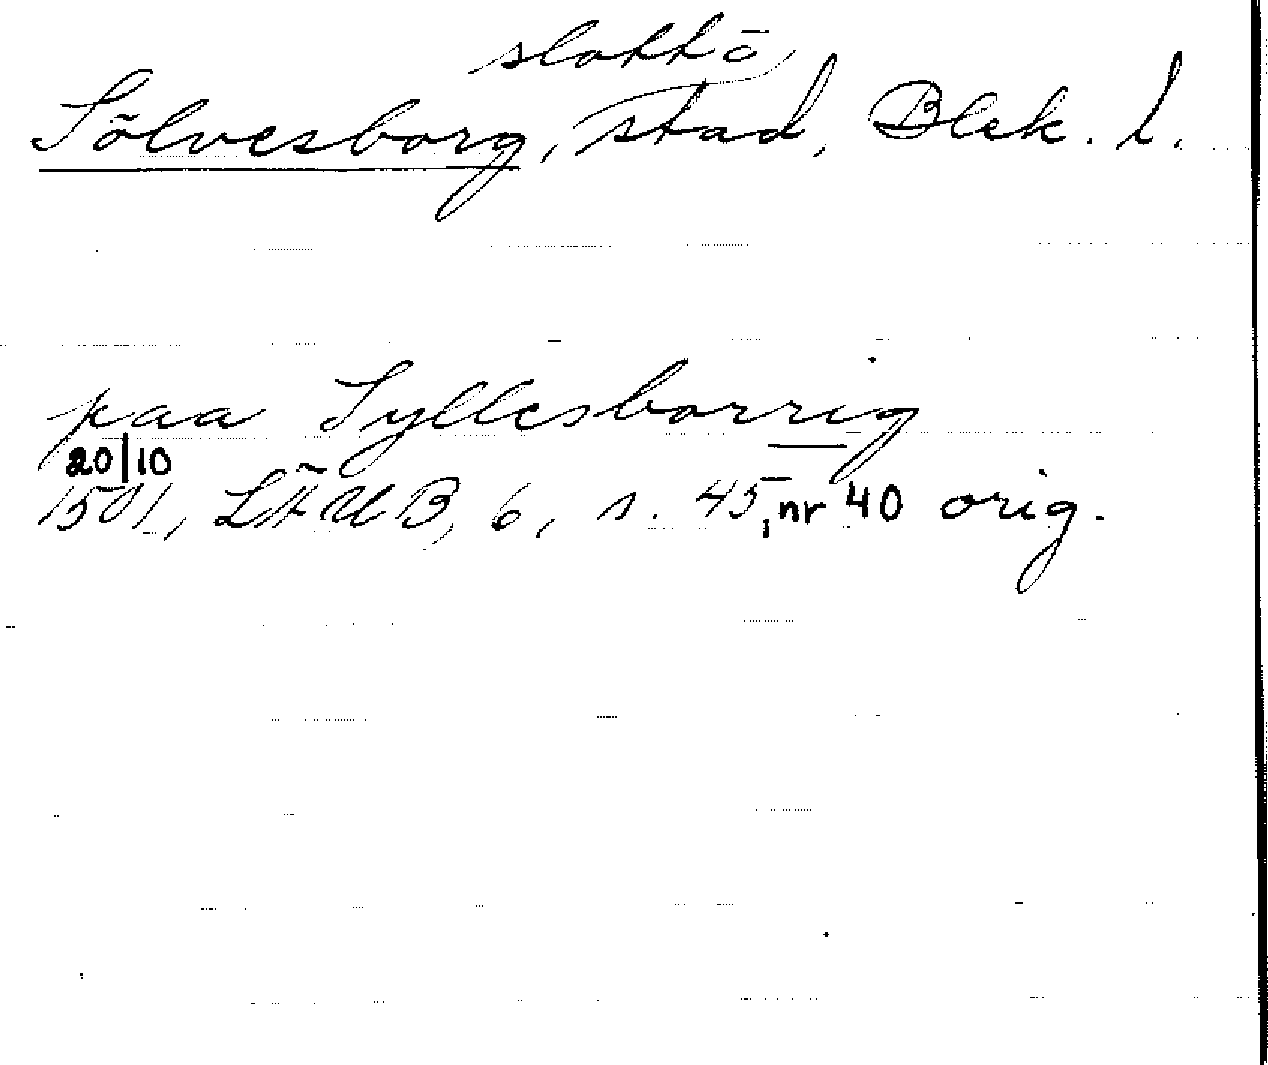 slott o
Sölvesborg, stad, Blek. l.
paa Syllesborrig
20/10
1501, LÄUB, 6, s. 45, nr 40 orig.